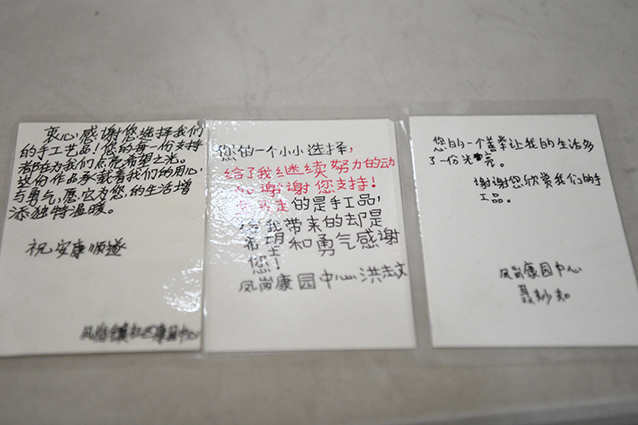 衷心感谢您选择我们
的手工艺品！您的每一份支持
都在为我们点亮希望之光。
这份作品承载着我们的用心
与勇气，愿它为您的生活增
添独特温暖。
祝安康顺遂
凤岗镇社区康园中心
您的一个小小选择，
给了我继续努力的动
力谢谢您支持！
您带走的是手工品，
给我带来的却是
希望和勇气感谢
您！
凤岗康园中心洪志文
您的一个善举让我的生活多
了一份光亮。
谢谢您欣赏我们的手
工品。
凤岗康园中心